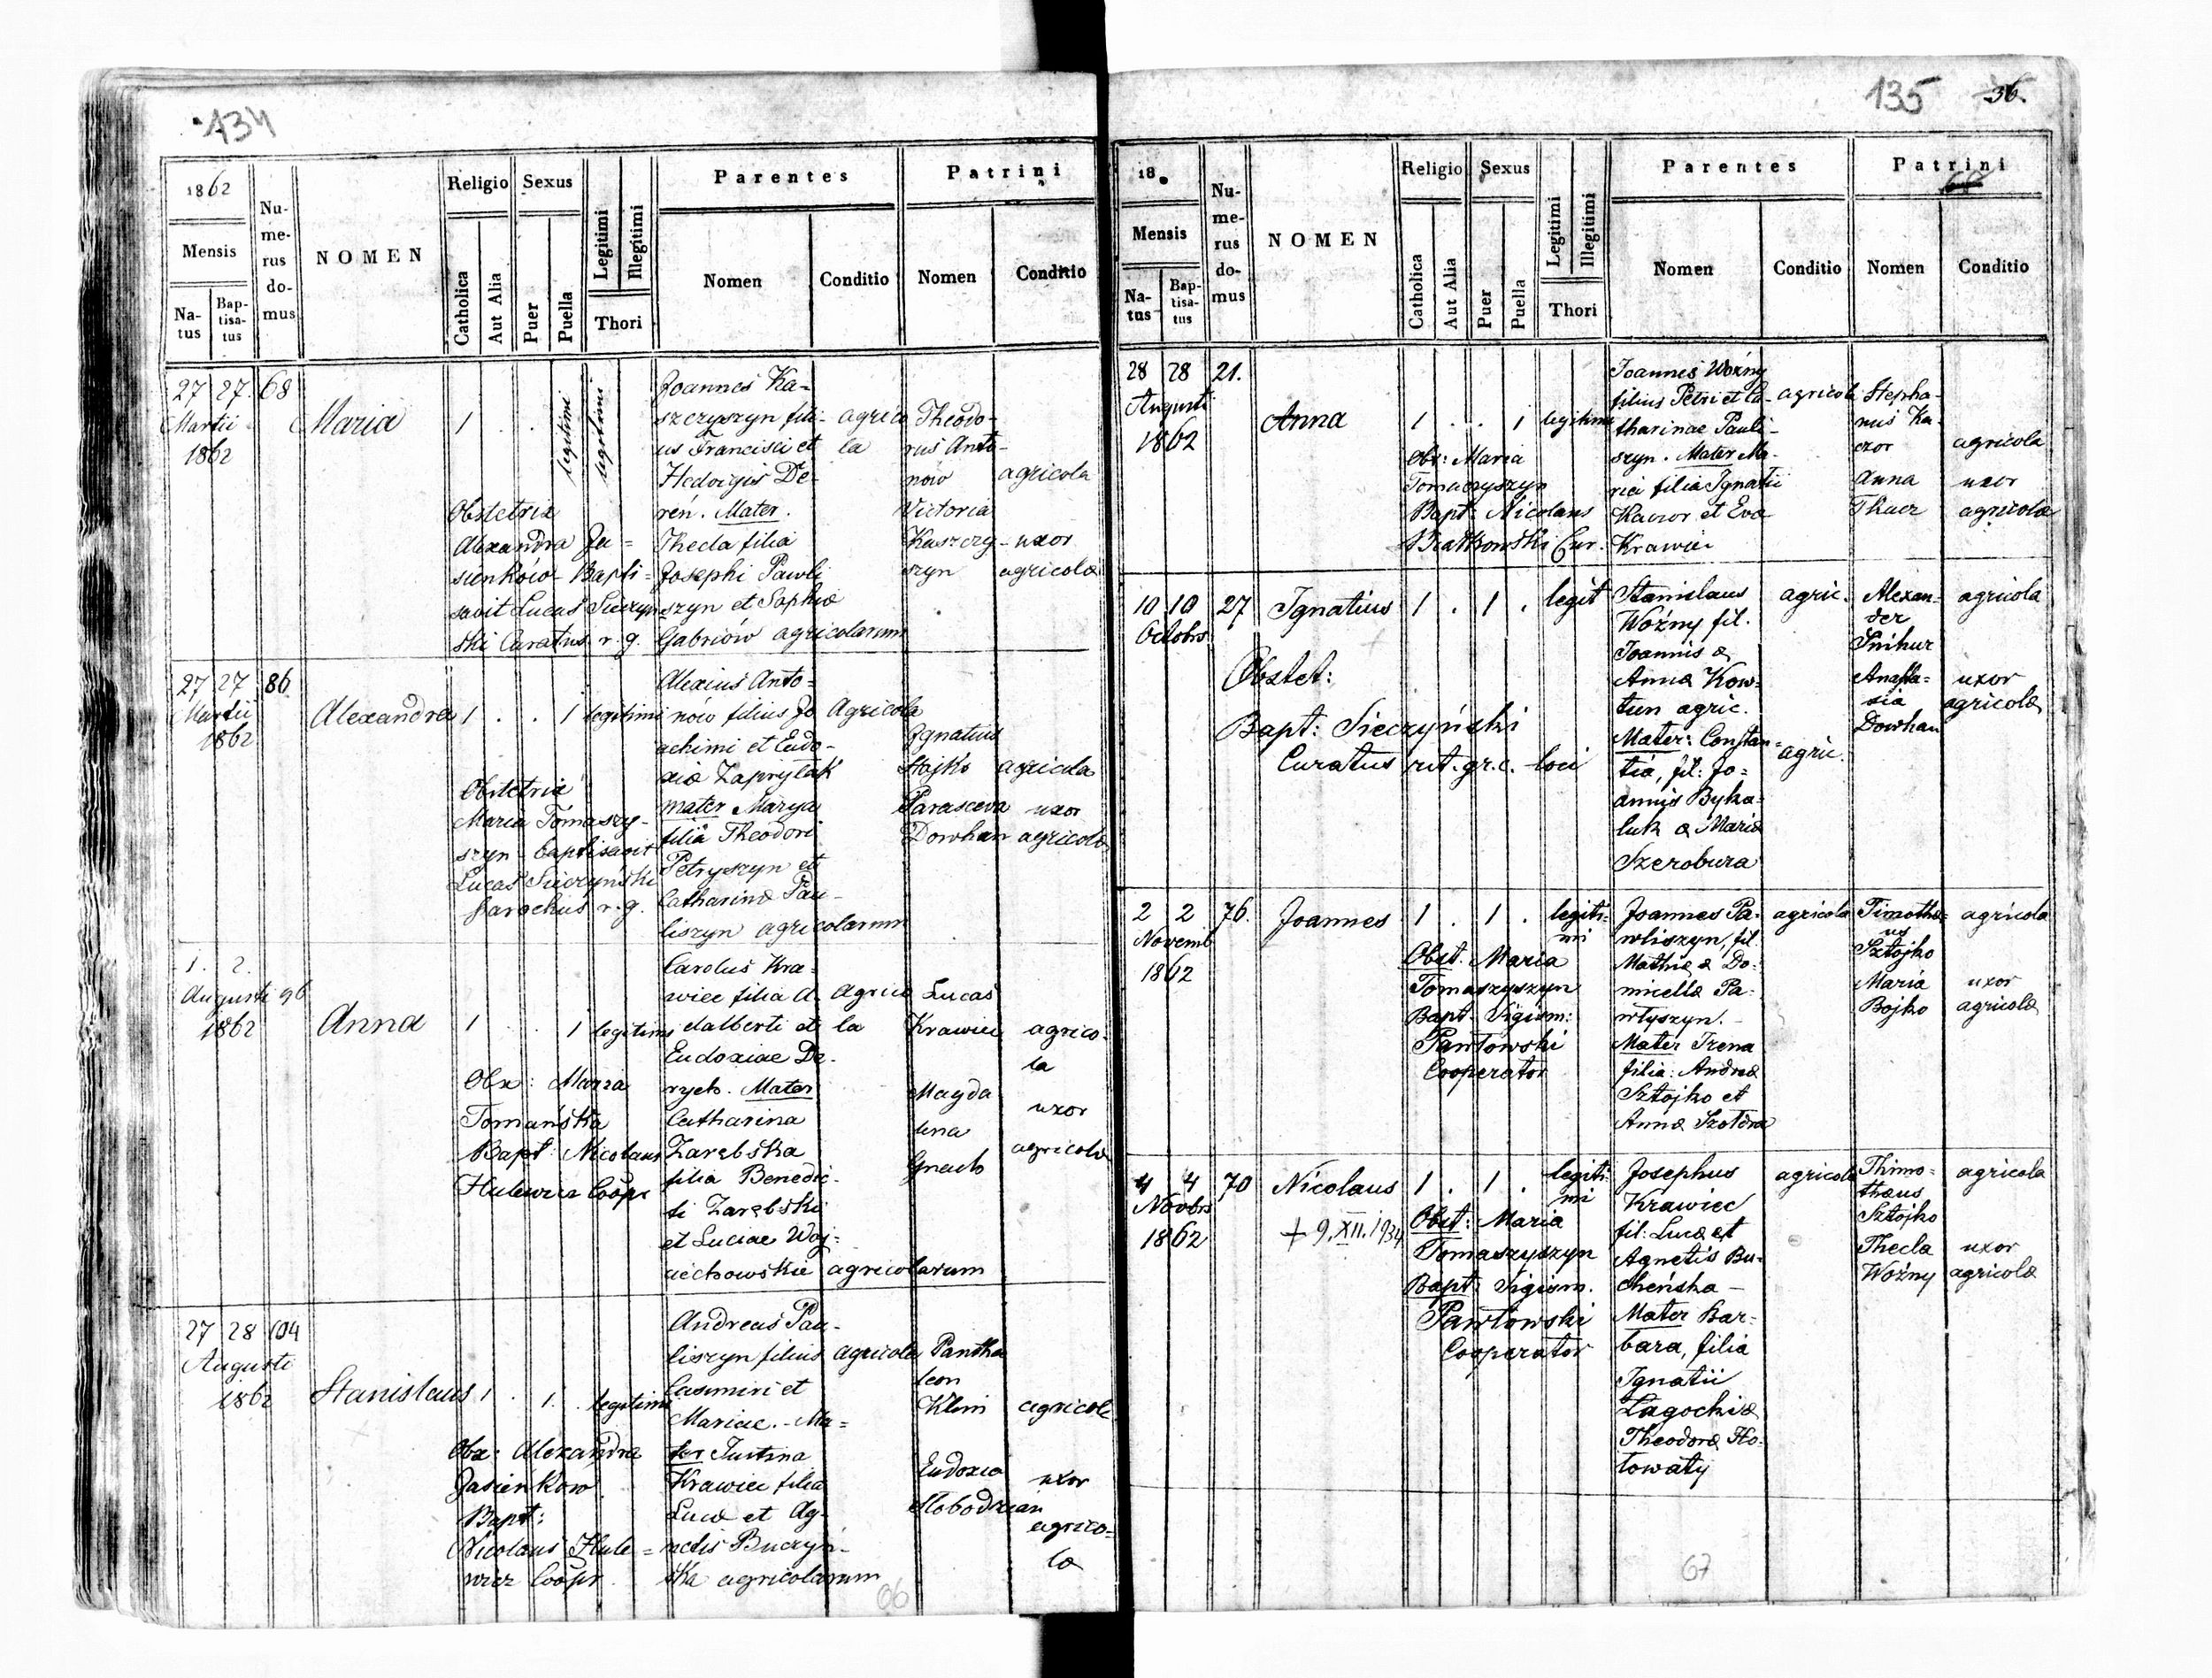 134
1862
Mensis
Na-
tus
Bap-
tisa-
tus
Nu-
me-
rus
do-
mus
NOMEN
Religio
Catholica
Aut Alia
Sexus
Puer
Puella
Legitimi
Illegitimi
Thori
Parentes
Nomen
Conditio
Patrini
Nomen
Conditio
27 27. 68
Martii
1862
Maria
1 . .
legitimi
legitimi
Obstetrix
Alexandra Ja=
sienków Bapti=
savit Lucas Sieczyn
ski Curatus r. g.
Joannes Ka=
szczyszyn fili-
us Francisci et
Hedvigis De-
reń. Mater.
Thecla filia
Josephi Pawli
szyn et Sophiæ
Gabriów agricolarum
agrico
la
Theodo-
rus Anto-
nów
Victoria
Kaszczy-
szyn
agricola
uxor
agricolæ
27 27 86
Martii
1862
Alexandra
1 . . 1 legitimi
Obstetrix
Maria Tomaszy-
szyn baptisavit
Lucas Sieczyński
parochus r. g.
Alexius Anto=
nów filius Jo
achimi et Eudo-
xiæ Zapryłak
mater Marya
filia Theodori
Petryszyn et
Catharinæ Pau-
liszyn agricolarum
Agricola
Ignatius
Stojko
Parasceva
Dowhan
agricola
uxor
agricolæ
1. 2.
Augusti 96
1862
Anna
1 . . 1 legitimi
Obx: Maria
Tomańska
Bapt: Nicolaus
Hulewicz Coopr
Carolus Kra=
wiec filia A-
dalberti et
Eudoxiae De-
rych. Mater
Catharina
Zarębska
filia Benedic-
ti Zarębski
et Luciae Woj=
ciechowskie agricolarum
agrico
la
Lucas
Krawiec
Magda
lena
Gnach
agrico-
la
uxor
agricolæ
27 28 104
Augusti
1862
Stanislaus
1 . 1. . legitimi
Obx: Alexandra
Jasienkow
Bapt:
Nicolaus Hule=
wicz Coopr
Andreas Pau-
liszyn filius
Casimiri et
Mariae. - Ma=
ter Justina
Krawiec filia
Lucæ et Ag-
netis Buczyń-
ska agricolarum
agricola
Pantha
leon
Klim
Eudoxia
Słobodzian
agricola
uxor
agrico=
læ
66
135 36.
18
Mensis
Na-
tus
Bap-
tisa-
tus
Nu-
me-
rus
do-
mus
NOMEN
Religio
Catholica
Aut Alia
Sexus
Puer
Puella
Legitimi
Illegitimi
Thori
Parentes
Nomen
Conditio
Patrini
Nomen
Conditio
28 28 21.
Augusti
1862
Anna
1 . . 1 legitimi
Obs: Maria
Tomaszyszyn
Bapt: Nicolaus
Białkowski Cur.
Joannes Woźny
filius Petri et Ca-
tharinae Pauli-
szyn. Mater Ma-
ria filia Ignatii
Kaczor et Eva
Krawiec
agricola
Stepha-
nus Ka-
czor
Anna
Tkacz
agricola
uxor
agricolæ
10 10 27
Octobris
Ignatius
1 . 1 . legit
Obstet:
Bapt: Sieczyński
Curatus rit. gr. c. loci
Stanislaus
Woźny fil.
Joannis &
Annæ Kow-
tun agric.
Mater: Constan=
tia, fil: Jo=
annis Byka-
luk & Mariæ
Szerobura
agric.
agric.
Alexan-
der
Snihur
Anasta=
sia
Dowhan
agricola
uxor
agricolæ
2 2 76.
Novemb
1862
Joannes
1 . 1 . legiti-
mi
Obst. Maria
Tomaszyszyn
Bapt. Sigism:
Pawłowski
Cooperator
Joannes Pa-
wliszyn, fil.
Mathiæ & Do-
micellæ Pa-
włyszyn. -
Mater Irena
filia: Andreæ
Sztojko et
Annæ Szołdra
agricola
Timothe=
us
Sztojko
Maria
Bojko
agricola
uxor
agricolæ
4 4 70
Novbris
1862
Nicolaus
+ 9.XII.1934
1 . 1 . legiti-
mi
Obst: Maria
Tomaszyszyn
Bapt: Sigism.
Pawłowski
Cooperator
Josephus
Krawiec
fil: Lucæ et
Agnetis Bu-
cheńska -
Mater Bar-
bara, filia
Ignatii
Zagockiæ
Theodoræ Ho-
łowaty
agricola
Thimo=
thæus
Sztojko
Thecla
Woźny
agricola
uxor
agricolæ
67